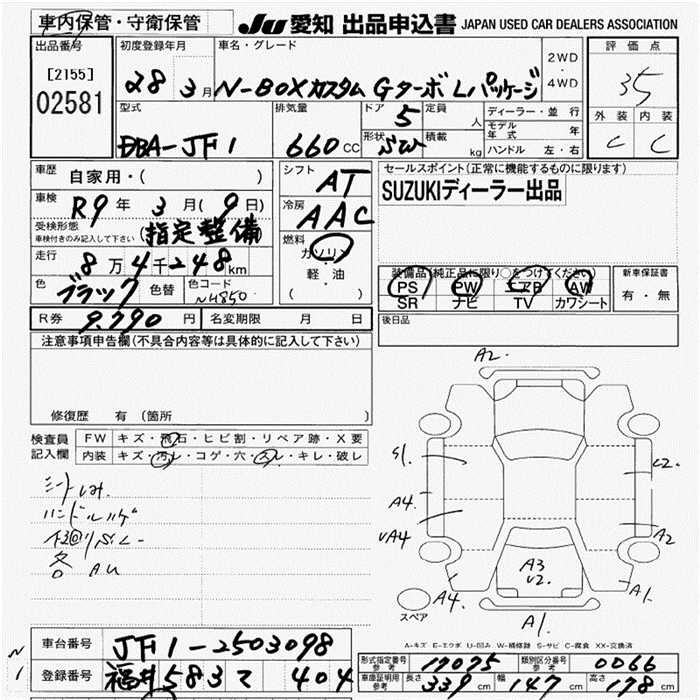 車内保管・守衛保管
JU 愛知 出品申込書 JAPAN USED CAR DEALERS ASSOCIATION
出品番号 初度登録年月 車名・グレード 2WD ・ 4WD 評価点
[2155] 02581 28 3月 N-BOXカスタム GターボLパッケージ 3.5
型式 排気量 ドア 5 定員 人 ディーラー・並行 外装 内装
DBA-JF1 660cc 形状 積載 kg モデル年式 年 C C
ハンドル 左・右
車歴 自家用・( ) シフト AT セールスポイント(正常に機能するものに限ります)
車検 R9年 3月(9日) 冷房 AAC SUZUKIディーラー出品
受検形態 車検付きのみ記入して下さい (指定整備)
燃料 ガソリン ・ 軽・油 ( )
走行 8万4千248km
装備品(純正品に限り○をつけてください) 新車保証書
PS PW エアB AW 有・無
SR ナビ TV カワシート
色 ブラック 色替 色コード NH850
R券 9.790円 名変期限 月 日 後日品
注意事項申告欄(不具合内容等は具体的に記入して下さい)
修復歴 有(箇所
検査員記入欄 FW キズ・飛石・ヒビ割・リペア跡・X要
内装 キズ・汚レ・コゲ・穴・スレ・キレ・破レ
シートしみ
ハンドルハゲ
各 AU
A2.
S1.
A4
UA4
A4.
A3
U2.
A1.
A1.
A2
U2.
スペア
A-キズ E-エクボ U-凹み W-補修跡 S-サビ C-腐食 XX-交換済
車台番号 JF1-2503098
N1
登録番号 福井 583 て 404
型式指定番号 参考 17075 類別区分番号 参考 0066
車庫証明用 参考 長さ 339cm 幅 147cm 高さ 178cm